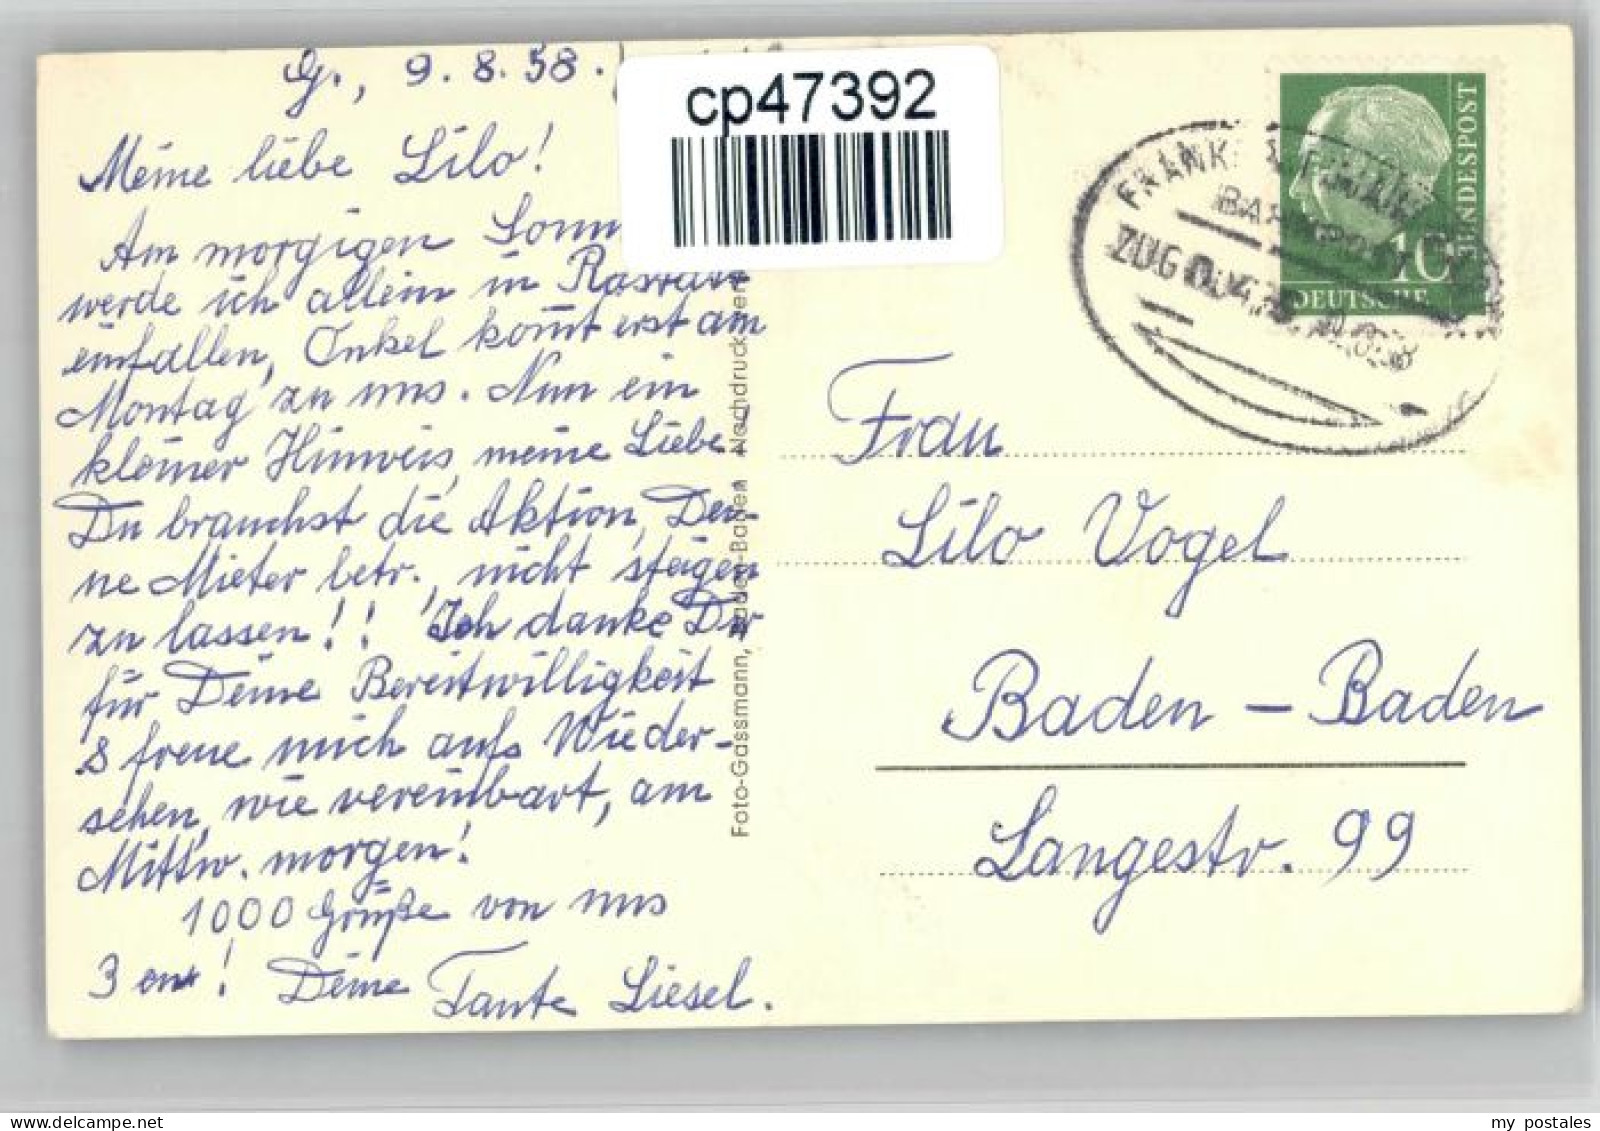 G., 9.8.58.
cp47392
Meine liebe Lilo!
Am morgigen Sonn
werde ich allein in Rastatt
einfallen, Onkel kommt erst am
Montag zu uns. Nun ein
kleiner Hinweis, meine Liebe
Du brauchst die Aktion, Dei-
ne Mieter betr., nicht steigen
zu lassen!! Ich danke Dir
für Deine Bereitwilligkeit
& freue mich aufs Wieder-
sehen, wie vereinbart, am
Mittw. morgen!
1000 Grüße von uns
3 en! Deine Tante Liesel.
Foto-Gassmann, Baden-Baden Nachdruck
BUNDESPOST
10
DEUTSCHE
FRANK
BAHNPOST
ZUG
Frau
Lilo Vogel
Baden-Baden
Langestr. 99
my postales